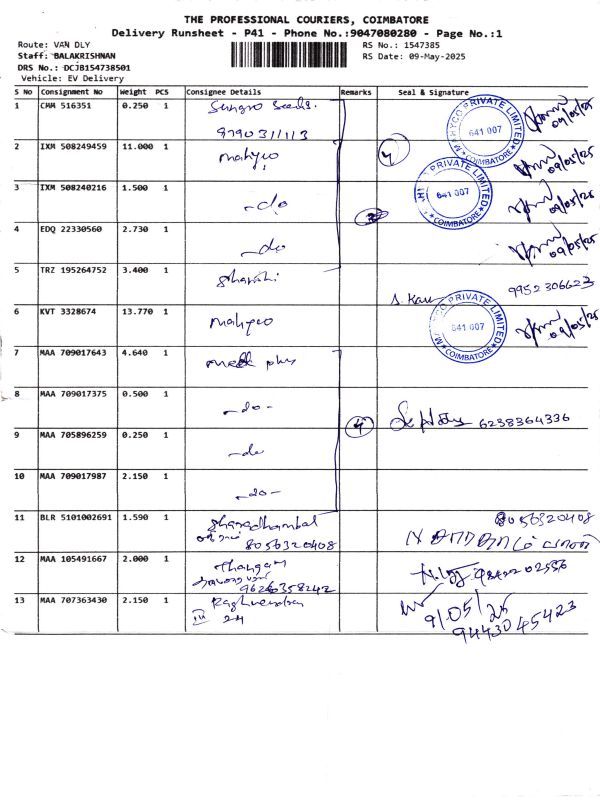 THE PROFESSIONAL COURIERS, COIMBATORE
Delivery Runsheet - P41 - Phone No.:9047080280 - Page No.:1
Route: VAN DLY
Staff: BALAKRISHNAN
DRS No.: DCJB154738501
Vehicle: EV Delivery
RS No.: 1547385
RS Date: 09-May-2025
S No Consignment No Weight PCS Consignee Details Remarks Seal & Signature
1 CMM 516351 0.250 1 Sungro Seeds.
9790311113
09/05/25
2 IXM 508249459 11.000 1 mahyco 4
09/05/25
3 IXM 508240216 1.500 1 -do
09/05/25
4 EDQ 22330560 2.730 1 -do
09/05/25
5 TRZ 195264752 3.400 1 9952306623
6 KVT 3328674 13.770 1 mahyco
09/05/25
7 MAA 709017643 4.640 1 medk plus
8 MAA 709017375 0.500 1 -do- 4 6238364336
9 MAA 705896259 0.250 1 -do
10 MAA 709017987 2.150 1 -do-
11 BLR 5101002691 1.590 1 Sharadhambal 8056320408
8056320408
12 MAA 105491667 2.000 1 Thangam
9626358242
13 MAA 707363430 2.150 1 Raghvendra 9/05/25
III 9443045423
PRIVATE LIMITED
641 007
COIMBATORE
PRIVATE LIMITED
641 007
COIMBATORE
PRIVATE LIMITED
641 007
COIMBATORE